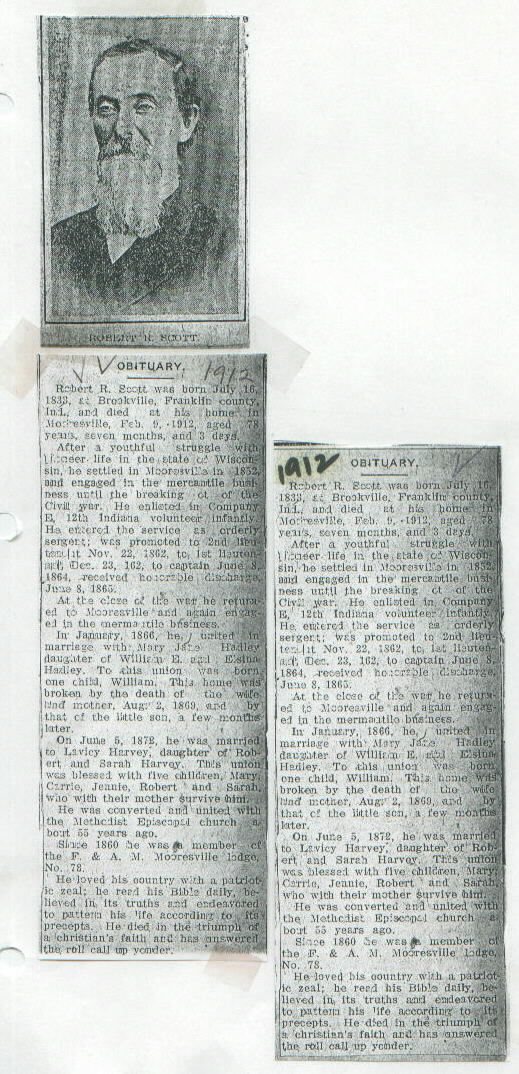 ROBERT R. SCOTT.
OBITUARY. 1912
Robert R. Scott was born July 16,
1833, at Brookville, Franklin county,
Ind., and died at his home in
Mooresville, Feb. 9, 1912, aged 78
years, seven months, and 3 days.
After a youthful struggle with
pioneer life in the state of Wiscon-
sin, he settled in Mooresville in 1852,
and engaged in the mercantile busi-
ness until the breaking ot of the
Civil war. He enlisted in Company
E, 12th Indiana volunteer infantly.
He entered the service as orderly
sergent; was promoted to 2nd lieu-
tenant Nov. 22, 1862, to 1st lieuten-
ant, Dec. 23, 162, to captain June 8,
1864, received honorable discharge,
June 8, 1865.
At the close of the war he return-
ed to Mooresville and again engag-
ed in the mermantile business.
In January, 1866, he united in
marriage with Mary Jane Hadley
daughter of William E. and Elsina
Hadley. To this union was born
one child, William. This home was
broken by the death of the wife
and mother, Aug. 2, 1869, and by
that of the little son, a few months
later.
On June 5, 1872, he was married
to Lavicy Harvey, daughter of Rob-
ert and Sarah Harvey. This union
was blessed with five children, Mary,
Carrie, Jennie, Robert and Sarah,
who with their mother survive him.
He was converted and united with
the Methodist Episcopal church a-
bout 55 years ago.
Since 1860 he was a member of
the F. & A. M. Mooresville lodge,
No. 78.
He loved his country with a patriot-
ic zeal; he read his Bible daily, be-
lieved in its truths and endeavored
to pattern his life according to its
precepts. He died in the triumph of
a christian's faith and has answered
the roll call up yonder.
1912 OBITUARY.
Robert R. Scott was born July 16,
1833, at Brookville, Franklin county,
Ind., and died at his home in
Mooresville, Feb. 9, 1912, aged
years, seven months, and 3 days.
After a youthful struggle with
pioneer life in the state of Wiscon-
sin, he settled in Mooresville in 1852,
and engaged in the mercantile busi-
ness until the breaking ot of the
Civil war. He enlisted in Company
E, 12th Indiana volunteer infantly.
He entered the service as orderly
sergent; was promoted to 2nd lieu-
tenant Nov. 22, 1862, to 1st lieuten-
ant, Dec. 23, 162, to captain June 8,
1864, received honorable discharge,
June 8, 1865.
At the close of the war he return-
ed to Mooresville and again engag-
ed in the mermantile business.
In January, 1866, he united in
marriage with Mary Jane Hadley
daughter of William E. and Elsina
Hadley. To this union was born
one child, William. This home was
broken by the death of the wife
and mother, Aug. 2, 1869, and by
that of the little son, a few months
later.
On June 5, 1872, he was married
to Lavicy Harvey, daughter of Rob-
ert and Sarah Harvey. This union
was blessed with five children, Mary,
Carrie, Jennie, Robert and Sarah,
who with their mother survive him.
He was converted and united with
the Methodist Episcopal church a-
bout 55 years ago.
Since 1860 he was a member of
the F. & A. M. Mooresville lodge,
No. 78.
He loved his country with a patriot-
ic zeal; he read his Bible daily, be-
lieved in its truths and endeavored
to pattern his life according to its
precepts. He died in the triumph of
a christian's faith and has answered
the roll call up yonder.